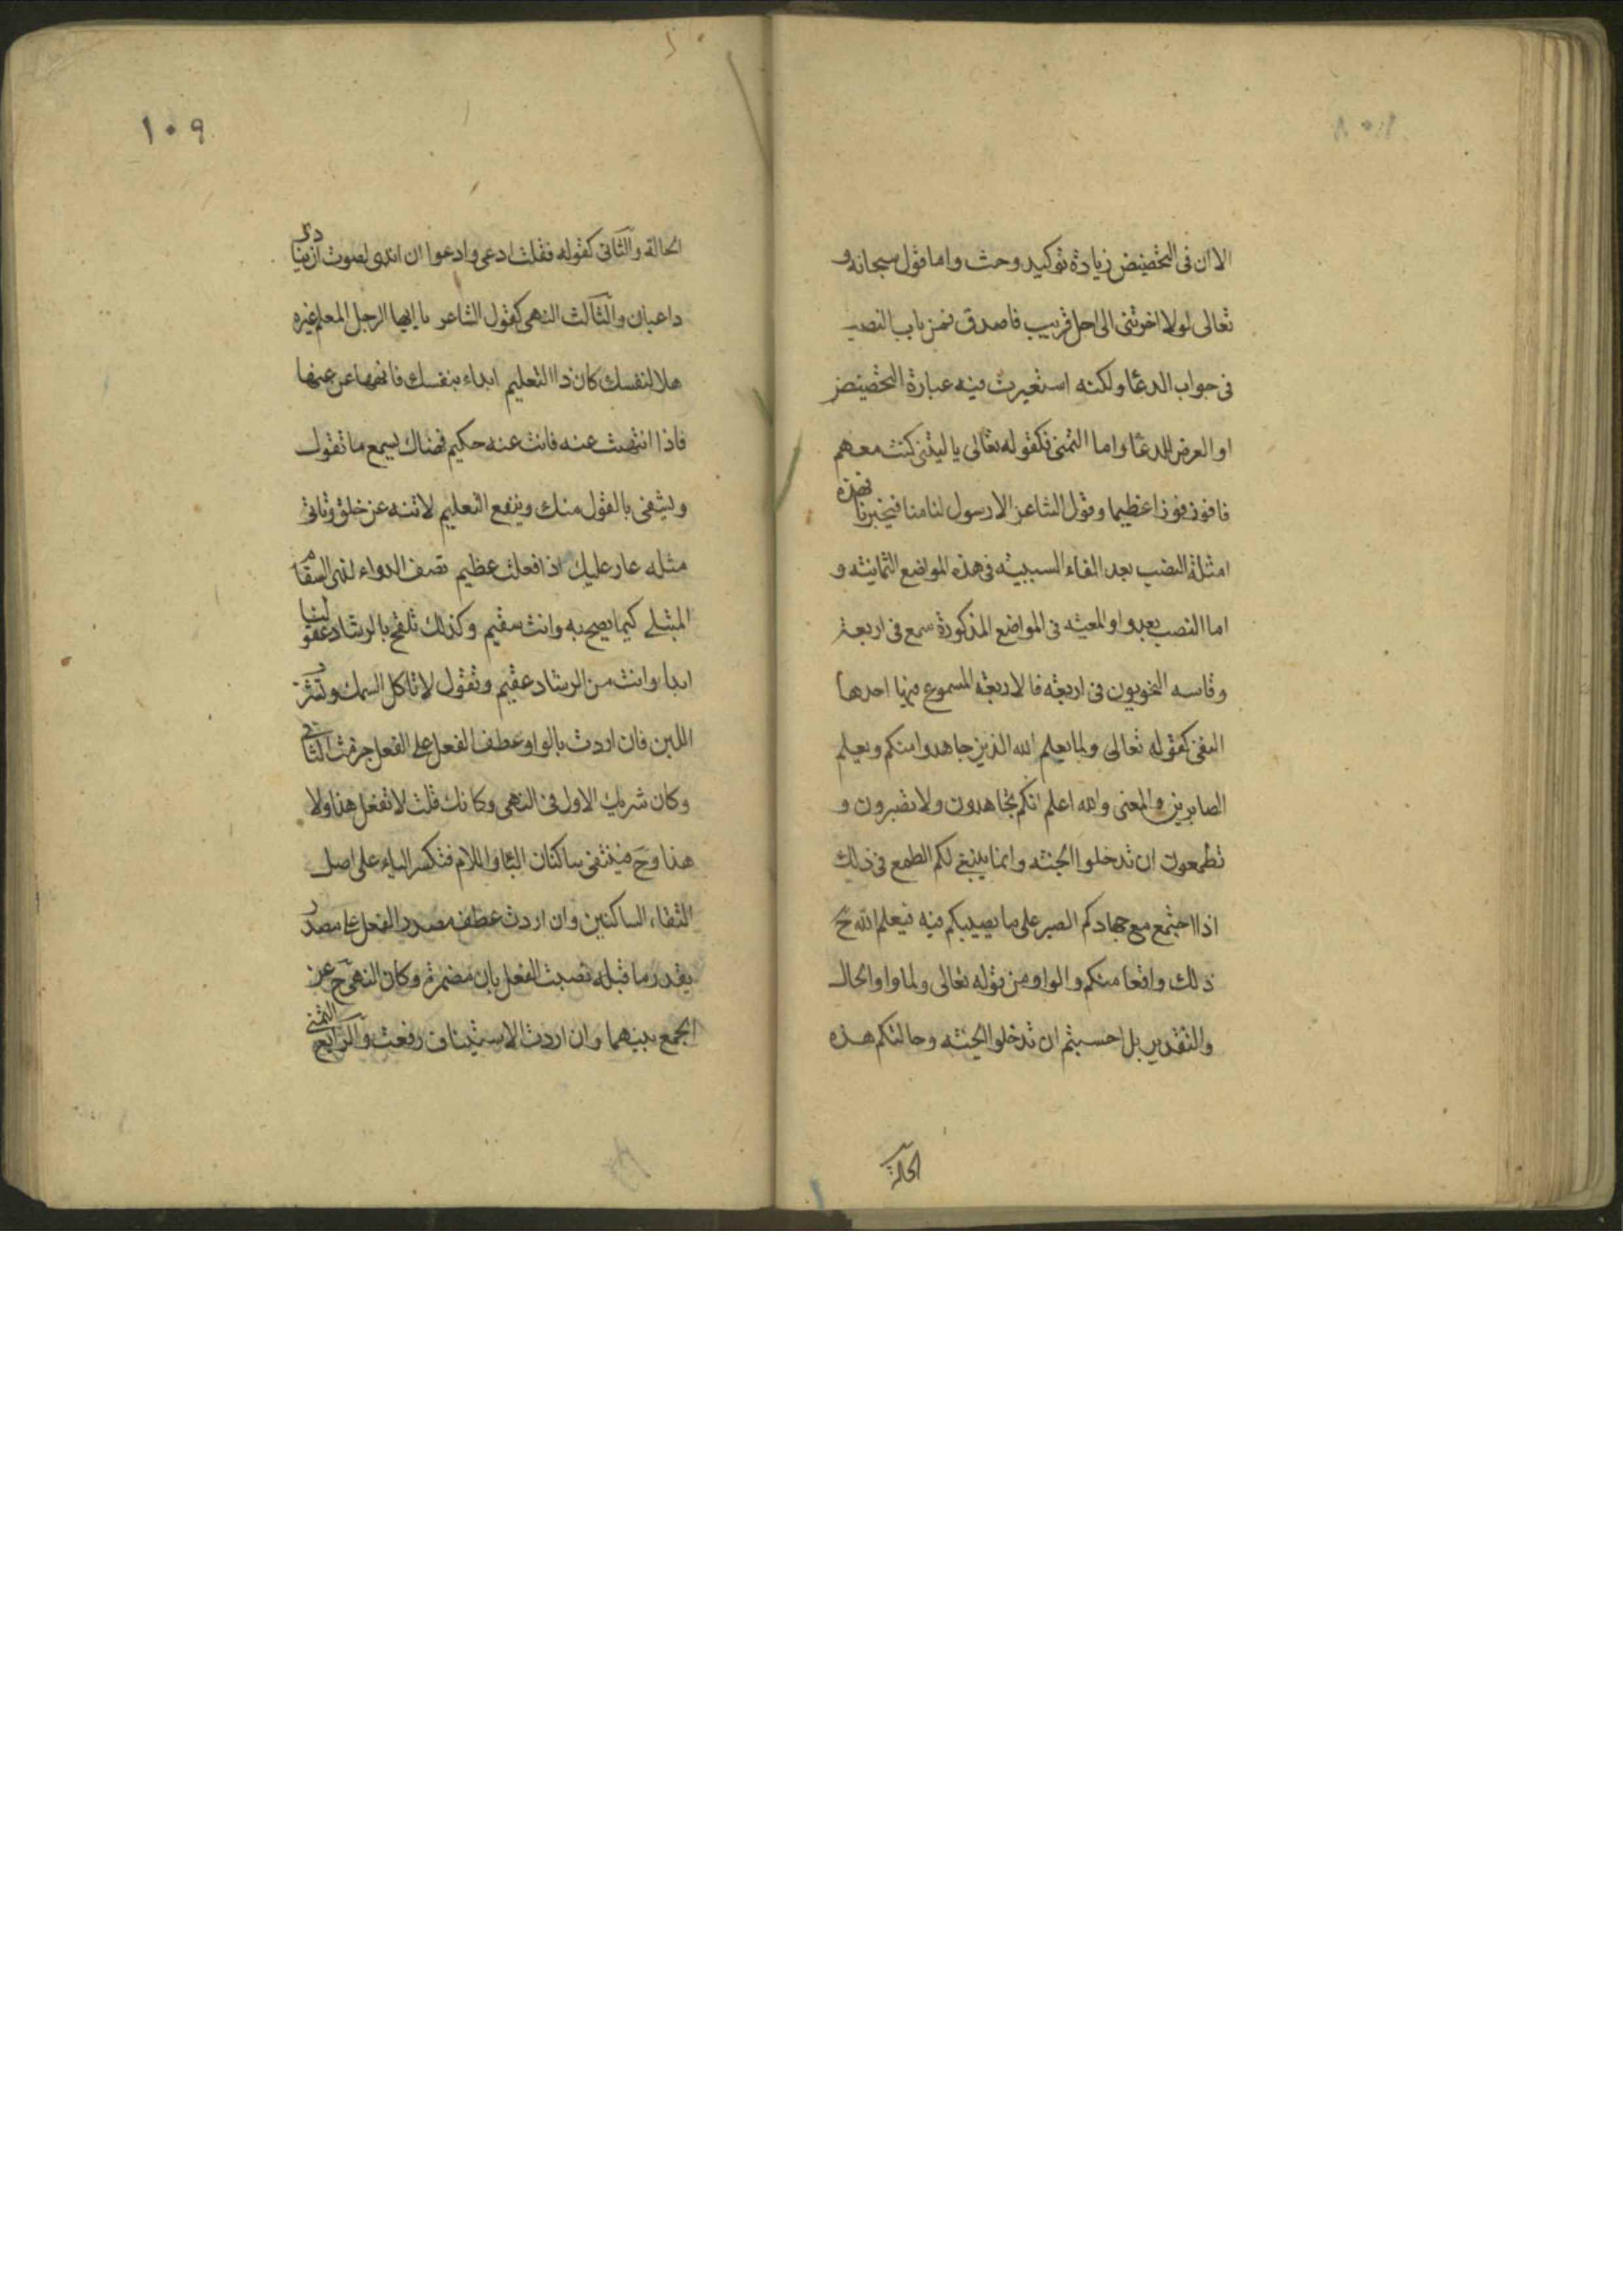 الا ان فى التحضيض زيادة توكيد وحث واما قول سبحانه و
تعالى لولا اخرتنى الى اجل قريب فاصدق فمن باب النصب
فى جواب الدعا ولكنه استعيرت فيه عبارة التحضيض
او العرض للدعا واما التمنى فكقوله تعالى يا ليتنى كنت معهم
فافوز فوزا عظيما وقول الشاعر الا رسول لنا منا فيخبرنا فهذه
امثلة النصب بعد الفاء السببيه فى هذه المواضع الثمانيه و
اما النصب بعد واو المعيه فى المواضع المذكورة سمع فى اربعة
وقاسه النحويون فى اربعه فالاربعه المسموع فيها احدها
النفى كقوله تعالى ولما يعلم الله الذين جاهدوا منكم ويعلم
الصابرين والمعنى والله اعلم انكم تجاهدون ولا تصبرون و
تطمعون ان تدخلوا الجنه وانما ينبغى لكم الطمع فى ذلك
اذا اجتمع مع جهادكم الصبر على ما يصيبكم فيه فيعلم الله ح
ذلك واقعا منكم والواو من قوله تعالى ولما واو الحال
والتقدير بل احسبتم ان تدخلوا الجنه وحالتكم هذه
الحالة
١٠٩
الحالة والثانى كقوله فقلت ادعى وادعوا ان اندى لصوت ان ينادى
داعيان والثالث النهى كقول الشاعر يا ايها الرجل المعلم غيره
هلا لنفسك كان ذا التعليم ابداء بنفسك فانهها عن غيها
فاذا انتهت عنه فانت عنه حكيم فهناك يسمع ما تقول
ويشفى بالقول منك وينفع التعليم لا تنه عن خلق وتاتى
مثله عار عليك اذا فعلت عظيم تصف الدواء لذى السقام
المبتلى كيما يصح به وانت سقيم وكذلك تلقح بالرشاد عقولنا
ابدا وانت من الرشاد عقيم وتقول لا تاكل السمك وتشرب
اللبن فان اردت بالواو عطف الفعل على الفعل جزمت الثانى
وكان شريك الاول فى النهى وكانك قلت لا تفعل هذا ولا
هذا وح فيلتقى ساكنان الباء واللام فتكسر الباء على اصل
التقاء الساكنين وان اردت عطف مصدر الفعل على مصدر
يقدر ما قبله نصبت الفعل بان مضمرة وكان النهى ح عن
الجمع بينهما وان اردت الاستيناف رفعت والرابع التمنى